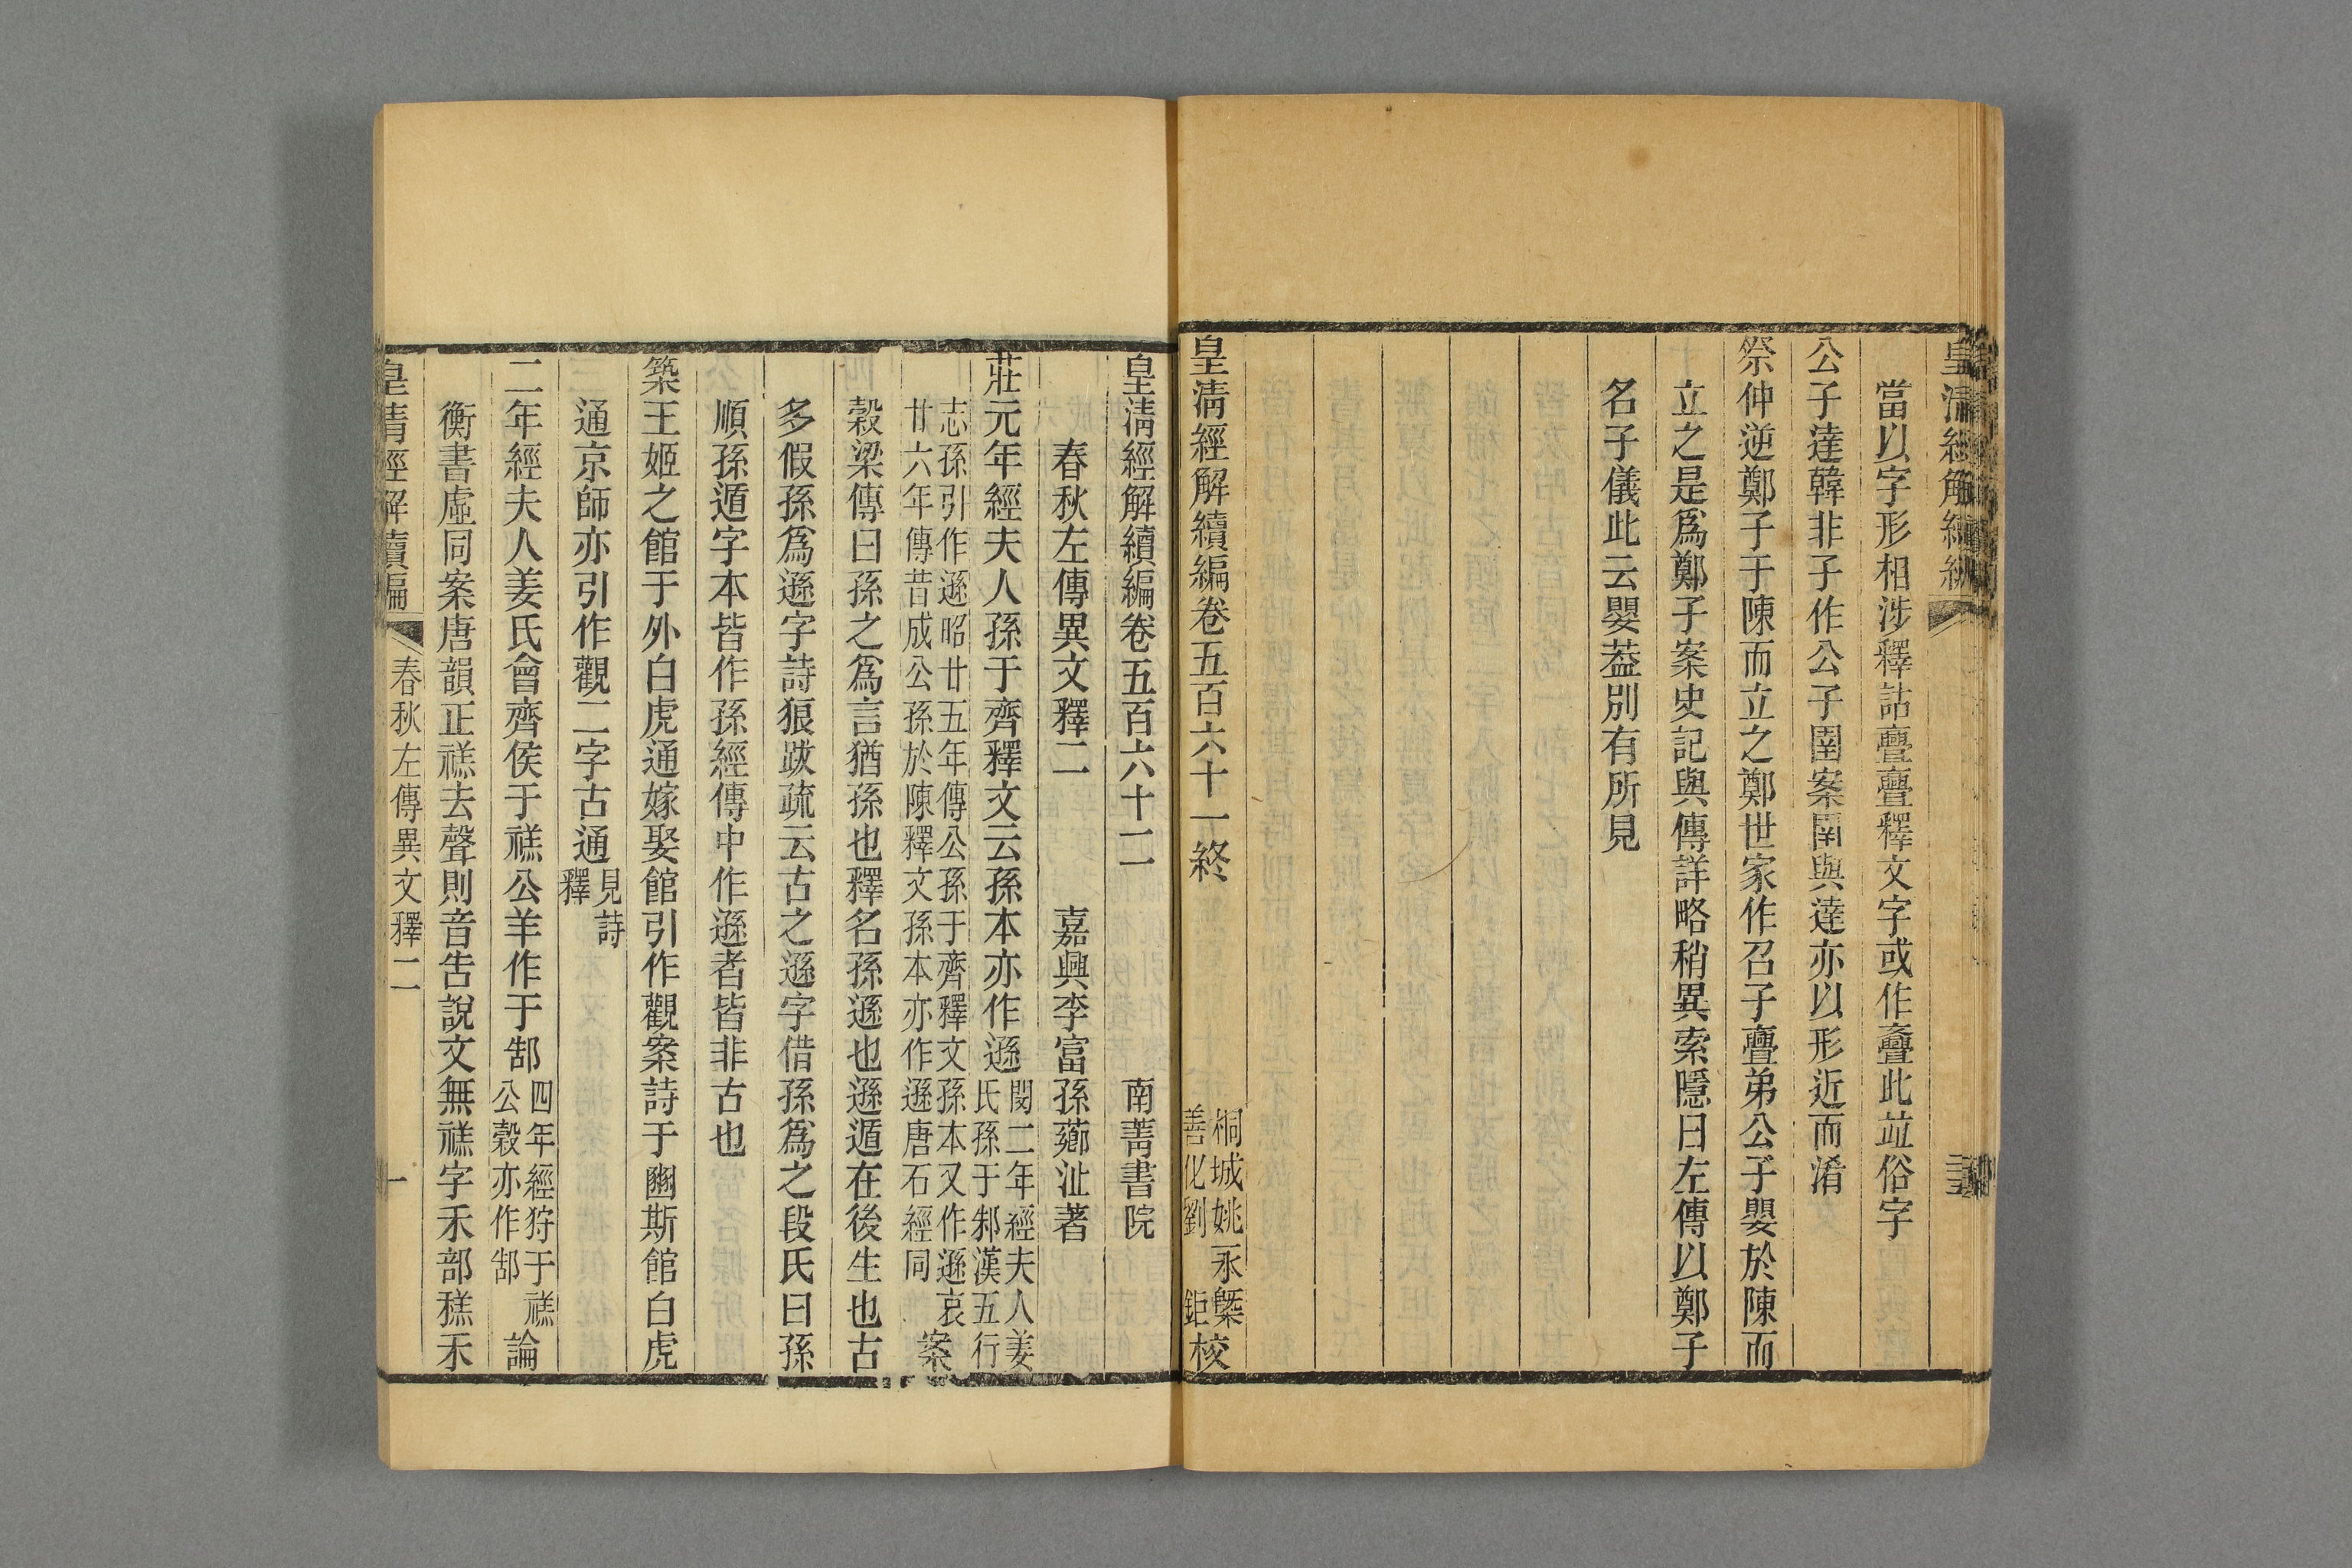 當以字形相涉釋詁亹亹釋文字或作斖此竝俗字
公子達韓非子作公子圉案圉與達亦以形近而淆
祭仲逆鄭子于陳而立之鄭世家作召子亹弟公子嬰於陳而
立之是爲鄭子案史記與傳詳略稍異索隱曰左傳以鄭子
名子儀此云嬰葢別有所見
皇淸經解續編卷五百六十一終
桐城姚永㮣
善化劉鉅校
皇淸經解續編卷五百六十二
南菁書院
春秋左傳異文釋二
嘉興李富孫薌沚著
莊元年經夫人孫于齊釋文云孫本亦作遜
閔二年經夫人姜
氏孫于邾漢五行
志孫引作遜昭廿五年傳公孫于齊釋文孫本又作遜哀
廿六年傳昔成公孫於陳釋文孫本亦作遜唐石經同
案
穀梁傳曰孫之爲言猶孫也釋名孫遜也遜遁在後生也古
多假孫爲遜字詩狼跋疏云古之遜字借孫爲之段氏曰孫
順孫遁字本皆作孫經傳中作遜者皆非古也
築王姬之館于外白虎通嫁娶館引作觀案詩于豳斯館白虎
通京師亦引作觀二字古通
見詩
釋
二年經夫人姜氏會齊侯于禚公羊作于郜
四年經狩于禚
公穀亦作郜
論
衡書虛同案唐韻正禚去聲則音告說文無禚字禾部䅵禾
皇清經解續編
春秋左傳異文釋二
一